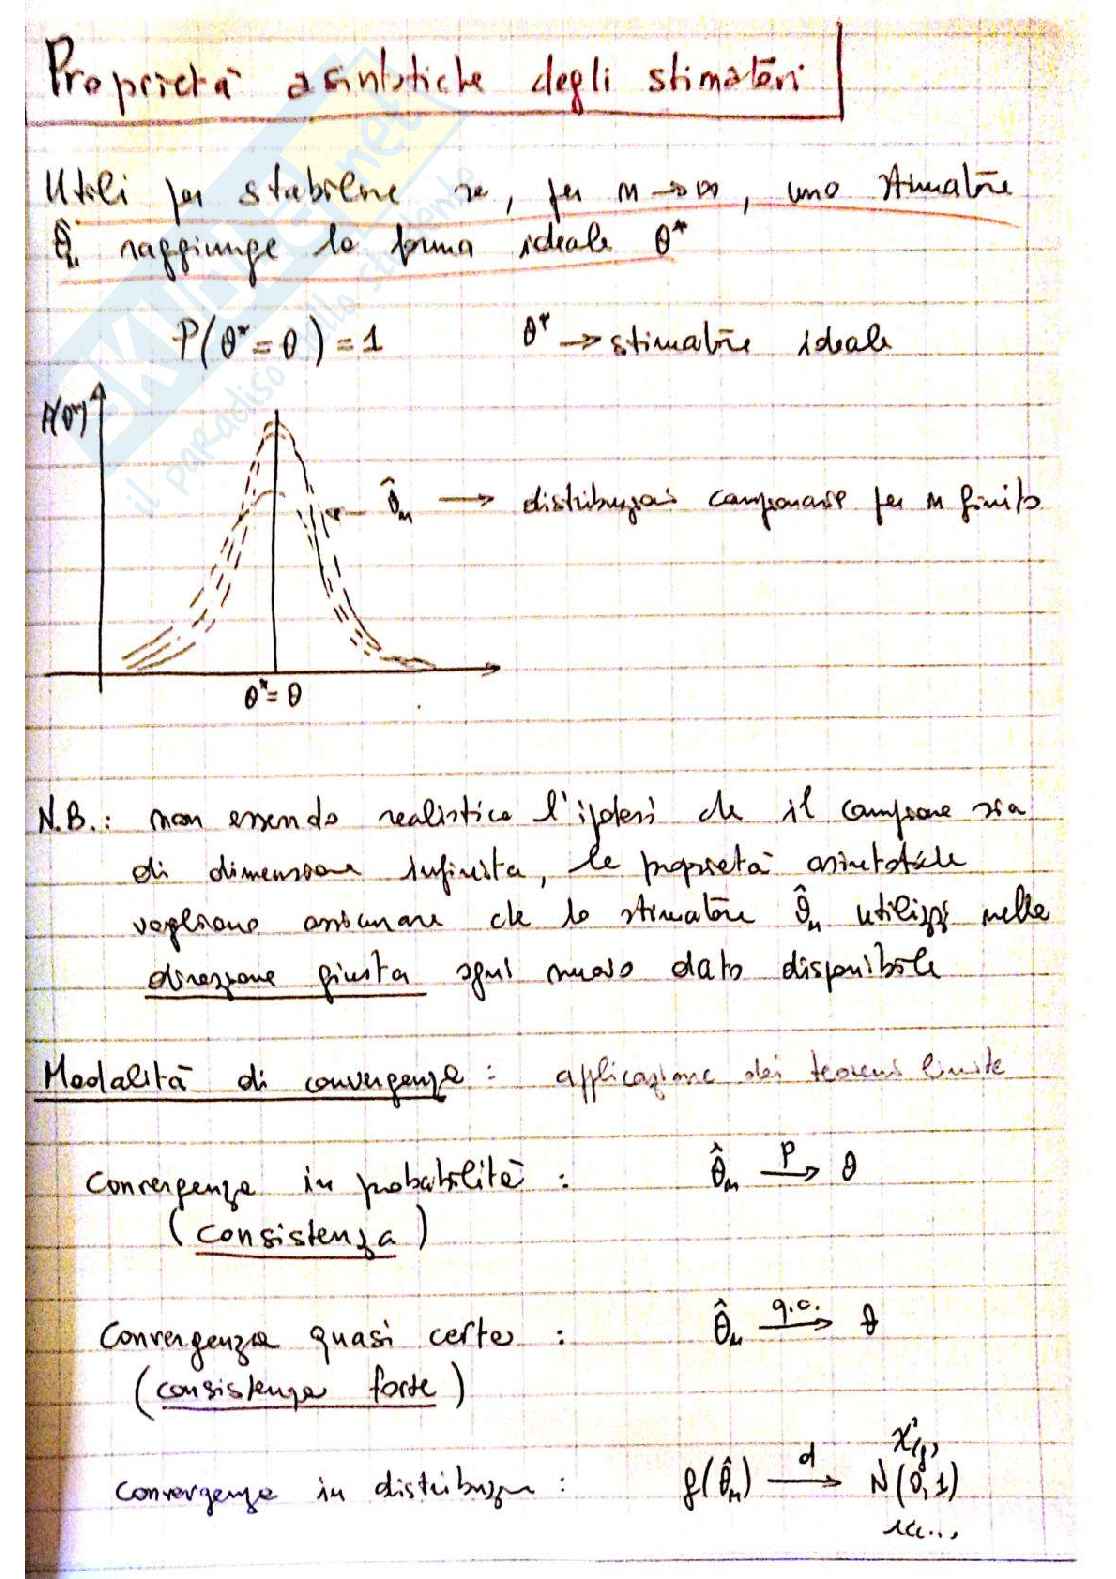 Proprietà asintotiche degli stimatori
Utili per stabilire se, per n → ∞, uno stimatore
θ̂n raggiunge la forma ideale θ*
P(θ* = θ) = 1 θ* → stimatore ideale
P(θ*)
θ̂n → distribuzioni campionarie per n finito
θ* = θ
N.B.: non essendo realistica l'ipotesi che il campione sia
di dimensione infinita, le proprietà asintotiche
vogliono assicurare che lo stimatore θ̂n utilizzi nella
direzione giusta ogni nuovo dato disponibile
Modalità di convergenza: applicazione dei teoremi limite
Convergenza in probabilità: θ̂n →P θ
(consistenza)
Convergenza quasi certa: θ̂n →q.c. θ
(consistenza forte)
χ²(g)
Convergenza in distribuzione: f(θ̂n) →d N(0,1)
ecc...
SKUOLA.net
il paradiso dello studente